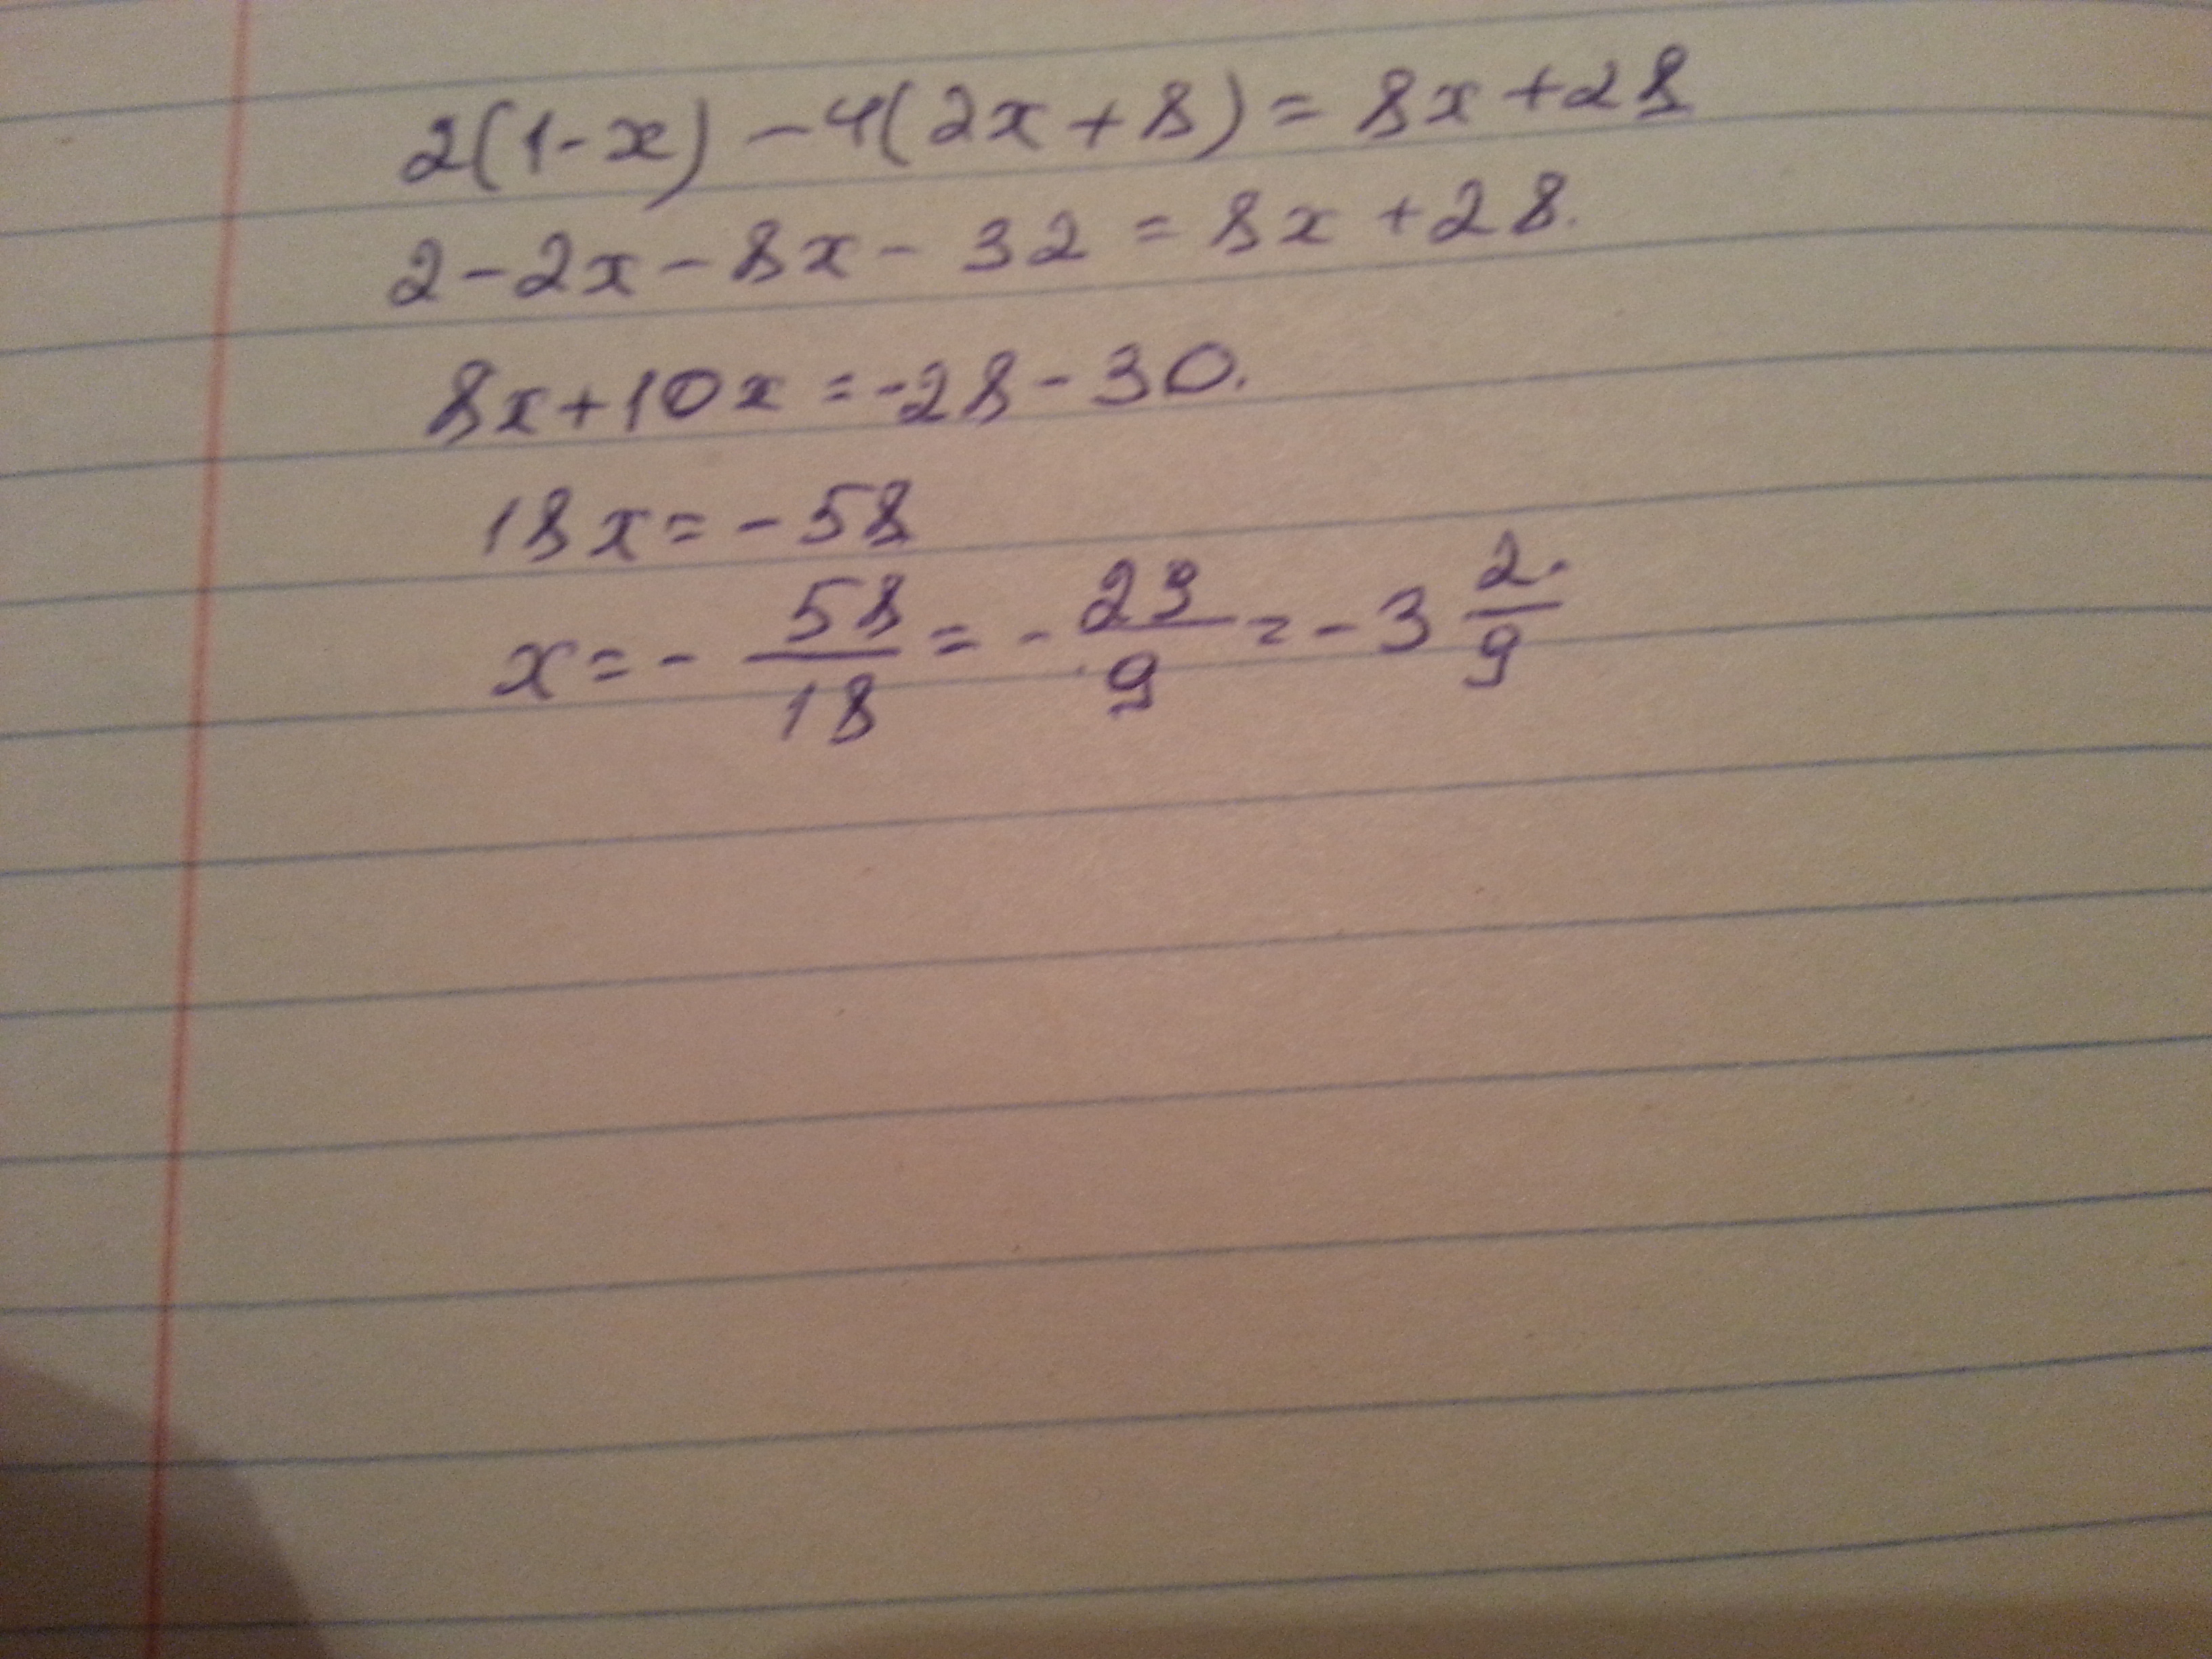 2(1-x) -4(2x+8) = 8x+28
2-2x-8x-32 = 8x+28.
8x+10x=-28-30.
18x=-58
x=- 58/18 = - 29/9 = -3 2/9